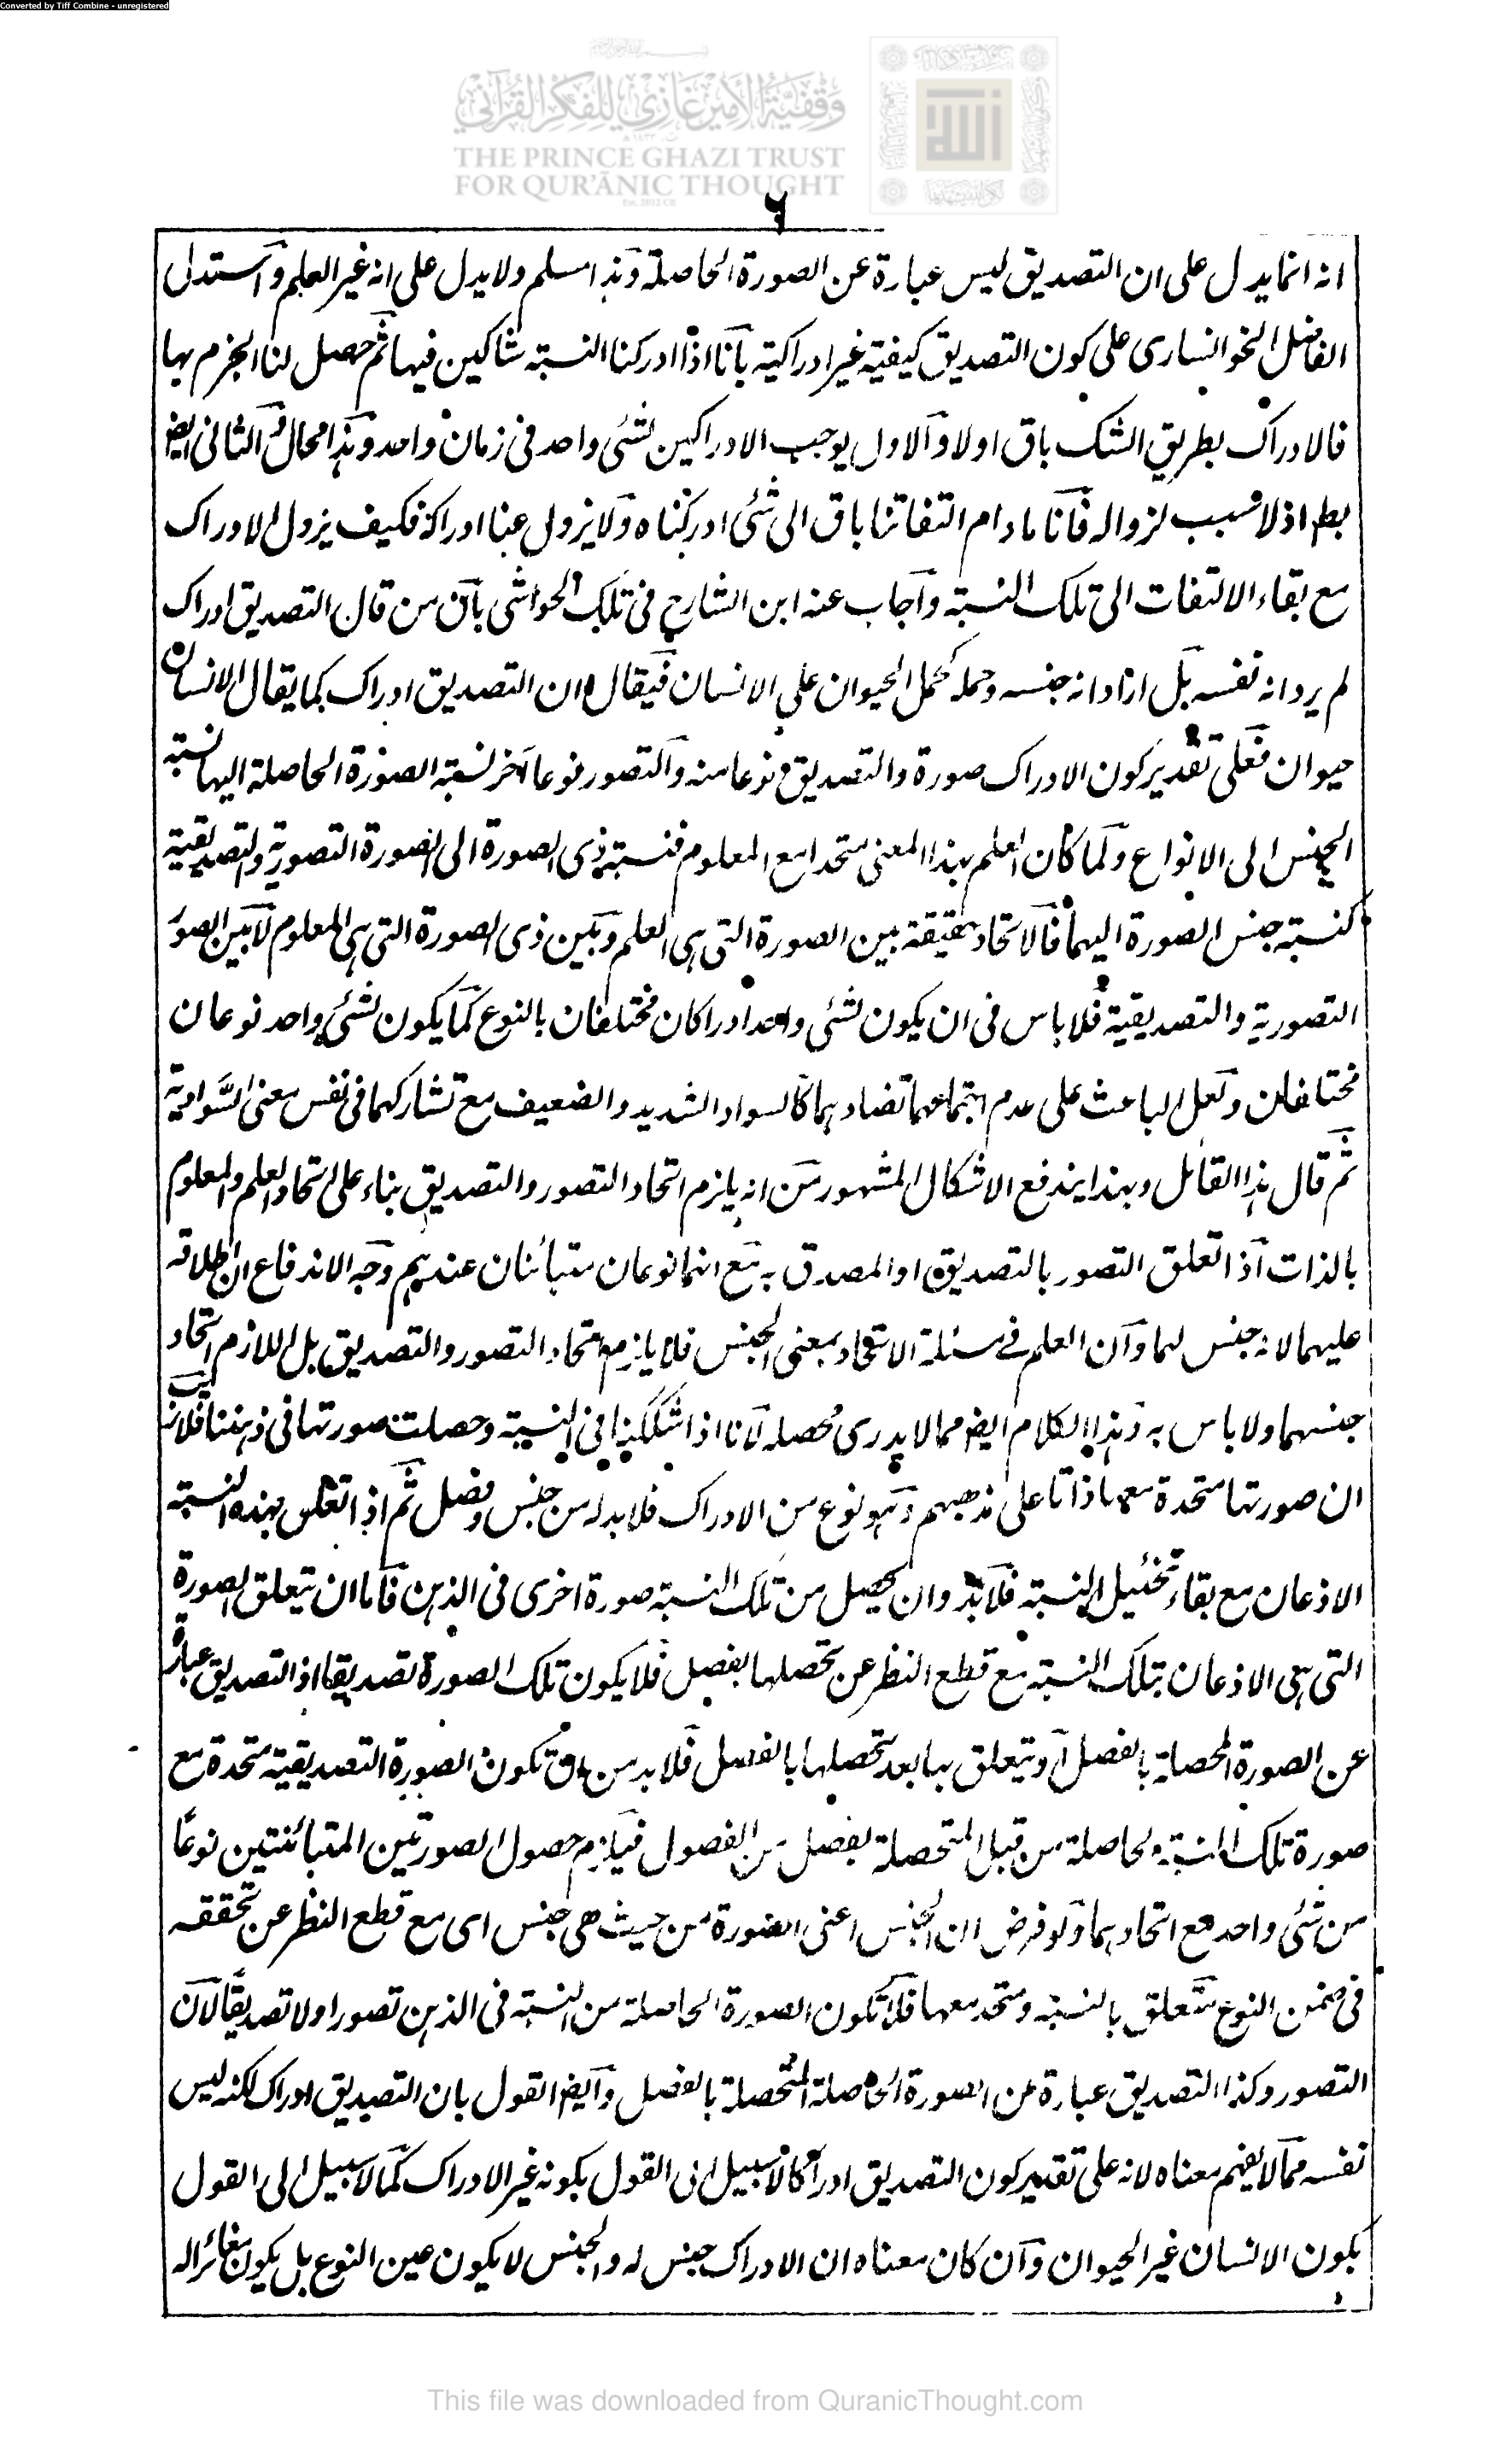 Converted by Tiff Combine - unregistered
وقفية الأمير غازي للفكر القرآني
THE PRINCE GHAZI TRUST
FOR QUR'ĀNIC THOUGHT
٦
انه انما يدل على ان التصديق ليس عبارة عن الصورة الحاصلة وهذا مسلم ولا يدل على انه غير العلم واستدل
الفاضل الخوانساري على كون التصديق كيفية غير ادراكية بانا اذا ادركنا النسبة شاكين فيها ثم حصل لنا الجزم بها
فالادراك بطريق الشك باق اولا والاول يوجب الادراكين لشئ واحد في زمان واحد وهذا محال والثاني ايض
بط اذ لا سبب لزواله فانا ما دام التفاتنا باق الى شئ ادركناه ولا يزول عنا ادراكه فكيف يزول الادراك
مع بقاء الالتفات الى تلك النسبة واجاب عنه ابن الشارح في تلك الحواشي بان من قال التصديق ادراك
لم يرد انه نفسه بل اراد انه جنسه وحمله كحمل الحيوان على الانسان فيقال ان التصديق ادراك كما يقال الانسان
حيوان فعلى تقدير كون الادراك صورة والتصديق نوعا منه والتصور نوعا آخر نسبة الصورة الحاصلة اليها نسبة
الجنس الى الانواع ولما كان العلم بهذا المعنى متحدا مع المعلوم فنسبة ذى الصورة الى الصورة التصورية والتصديقية
كنسبة جنس الصورة اليهما فالاتحاد حقيقة بين الصورة التي هى العلم وبين ذى الصورة التي هى المعلوم لا بين الصور
التصورية والتصديقية فلا باس فى ان يكون لشئ واحد ادراكان مختلفان بالنوع كما يكون لشئ واحد نوعان
مختلفان ولعل الباعث على عدم اجتماعهما تضادهما كالسواد الشديد والضعيف مع تشاركهما فى نفس معنى السوادية
ثم قال هذا القائل وبهذا يندفع الاشكال المشهور من انه يلزم اتحاد التصور والتصديق بناء على اتحاد العلم والمعلوم
بالذات اذا تعلق التصور بالتصديق او المصدق به مع انهما نوعان متبائنان عندهم وجه الاندفاع ان اطلاقه
عليهما لانه جنس لهما وان العلم فى مسئلة الاتحاد بمعنى الجنس فلا يلزم اتحاد التصور والتصديق بل اللازم اتحاد
جنسهما ولا باس به وهذا الكلام ايض مما لا يدرى محصله لانا اذا شككنا فى النسبة وحصلت صورتها فى ذهننا فلا ريب
ان صورتها متحدة معها ذاتا على مذهبهم وهو نوع من الادراك فلا بد له من جنس وفصل ثم اذا تعلق بهذه النسبة
الاذعان مع بقاء تخييل النسبة فلابد وان يحصل من تلك النسبة صورة اخرى فى الذهن فاما ان يتعلق الصورة
التي هى الاذعان بتلك النسبة مع قطع النظر عن تحصلها بفصل فلا يكون تلك الصورة تصديقا اذ التصديق عبارة
عن الصورة المحصلة بالفصل او يتعلق بها بعد تحصلها بالفصل فلا بد من ان تكون الصورة التصديقية متحدة مع
صورة تلك النسبة الحاصلة من قبل المتحصلة بفصل من الفصول فيلزم حصول الصورتين المتبائنتين نوعًا
من شئ واحد مع اتحادهما ولو فرض ان الجنس اعنى الصورة من حيث هى جنس اى مع قطع النظر عن تحققه
فى ضمن النوع متعلق بالنسبة ومتحد معها فلا تكون الصورة الحاصلة من النسبة فى الذهن تصورا ولا تصديقًا لان
التصور وكذا التصديق عبارة عن الصورة الحاصلة المتحصلة بالفصل وايض القول بان التصديق ادراك لكنه ليس
نفسه مما لا يفهم معناه لانه على تقدير كون التصديق ادراكا لا سبيل الى القول بكونه غير الادراك كما لا سبيل الى القول
بكون الانسان غير الحيوان وان كان معناه ان الادراك جنس له والجنس لا يكون عين النوع بل يكون مغائرا له
This file was downloaded from QuranicThought.com